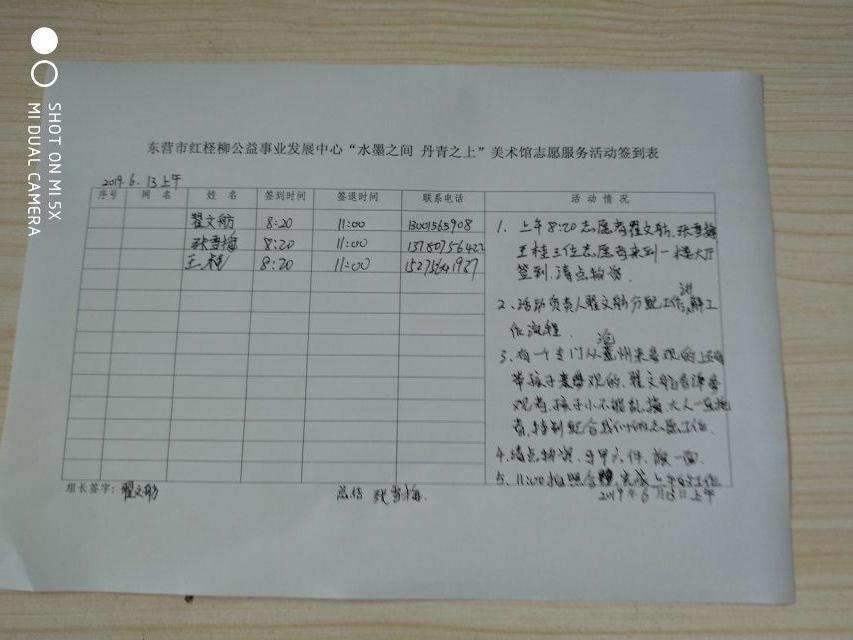 SHOT ON MI 5X
MI DUAL CAMERA
东营市红柽柳公益事业发展中心“水墨之间 丹青之上”美术馆志愿服务活动签到表
2019.6.13上午
序号 网 名 姓 名 签到时间 签退时间 联系电话 活 动 情 况
翟文舫 8:20 11:00
张雪梅 8:20 11:00
王桂 8:20 11:00
1. 上午8:20志愿者翟文舫.张雪梅
王桂三位志愿者来到一楼大厅
签到.清点物资.
2、活动负责人翟文舫分配工作,讲解工
作流程.
3、有一个专门从 州来参观的.还有
带孩子来参观的.翟文舫
观者.孩子小不能乱摸.大人一
着,特别配合我们的志愿工作.
4.清点物资.马甲六件.旗一面.
5、11:00拍照合 .完成上午的工作
组长签字: 翟文舫 总结 张雪梅. 2019年6月13日上午